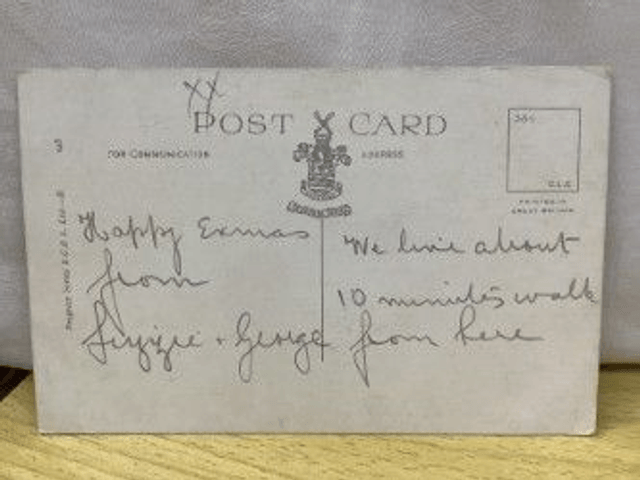 XX
POST CARD
3
FOR COMMUNICATION
ADDRESS
PRINTED IN
GREAT BRITAIN
Happy Exmas
from
Lizzie + George
We live about
10 minutes walk
from here